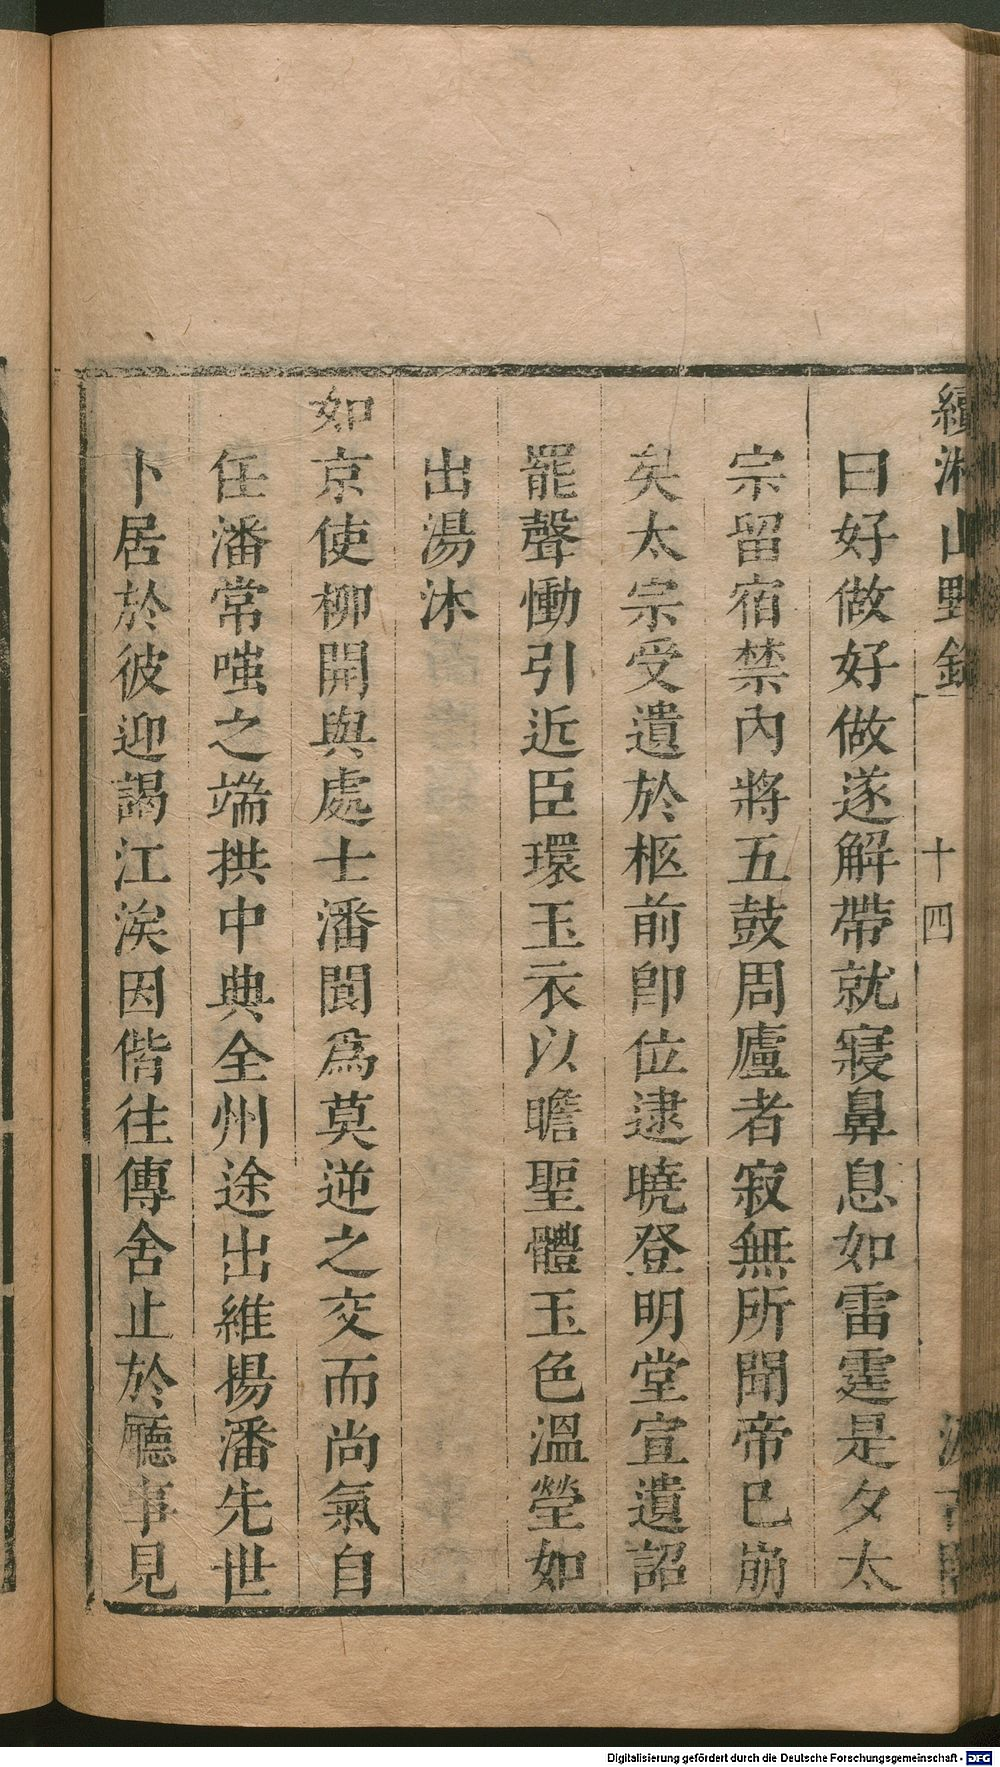 續湘山野錄
十四
曰好做好做遂解帶就寢鼻息如雷霆是夕太
宗留宿禁內將五鼓周廬者寂無所聞帝已崩
矣太宗受遺於柩前卽位逮曉登明堂宣遺詔
罷聲慟引近臣環玉衣以瞻聖體玉色溫瑩如
出湯沐
如京使柳開與處士潘閬爲莫逆之交而尚氣自
任潘常嗤之端拱中典全州途出維揚潘先世
卜居於彼迎謁江涘因偕往傳舍止於廳事見
Digitalisierung gefördert durch die Deutsche Forschungsgemeinschaft - DFG